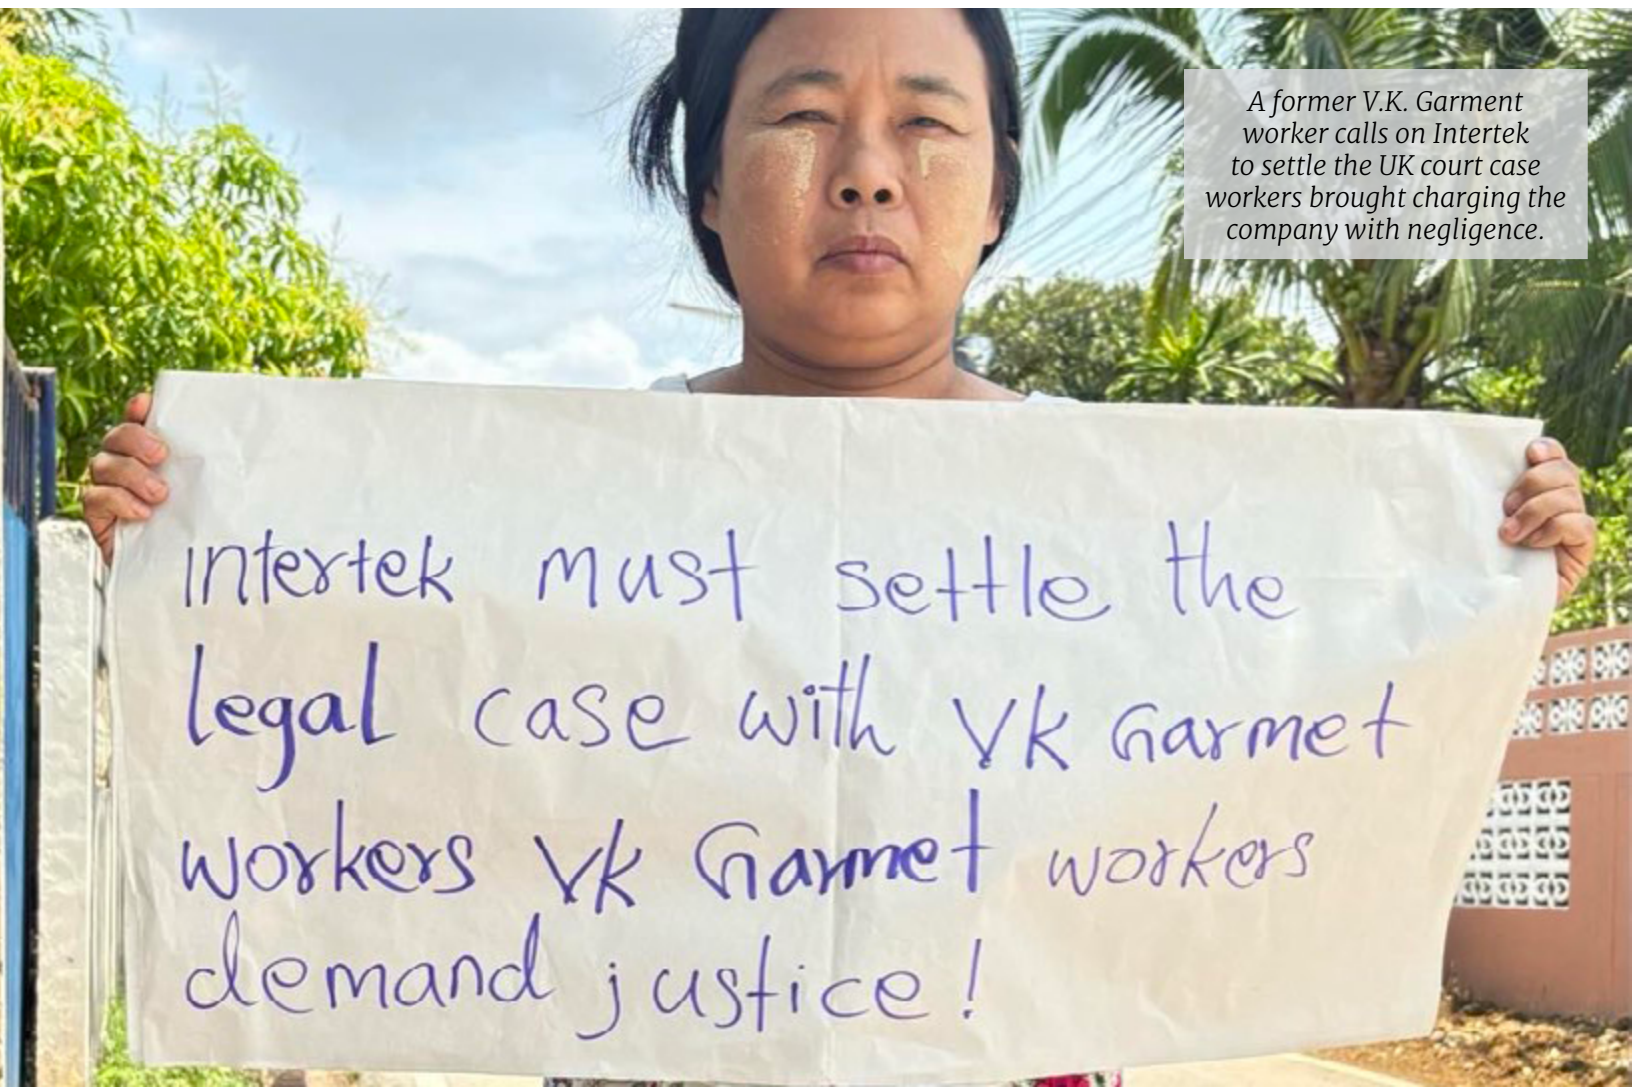 A former V.K. Garment
worker calls on Intertek
to settle the UK court case
workers brought charging the
company with negligence.
intertek must settle the
legal case with VK Garmet
workers VK Garmet workers
demand justice!